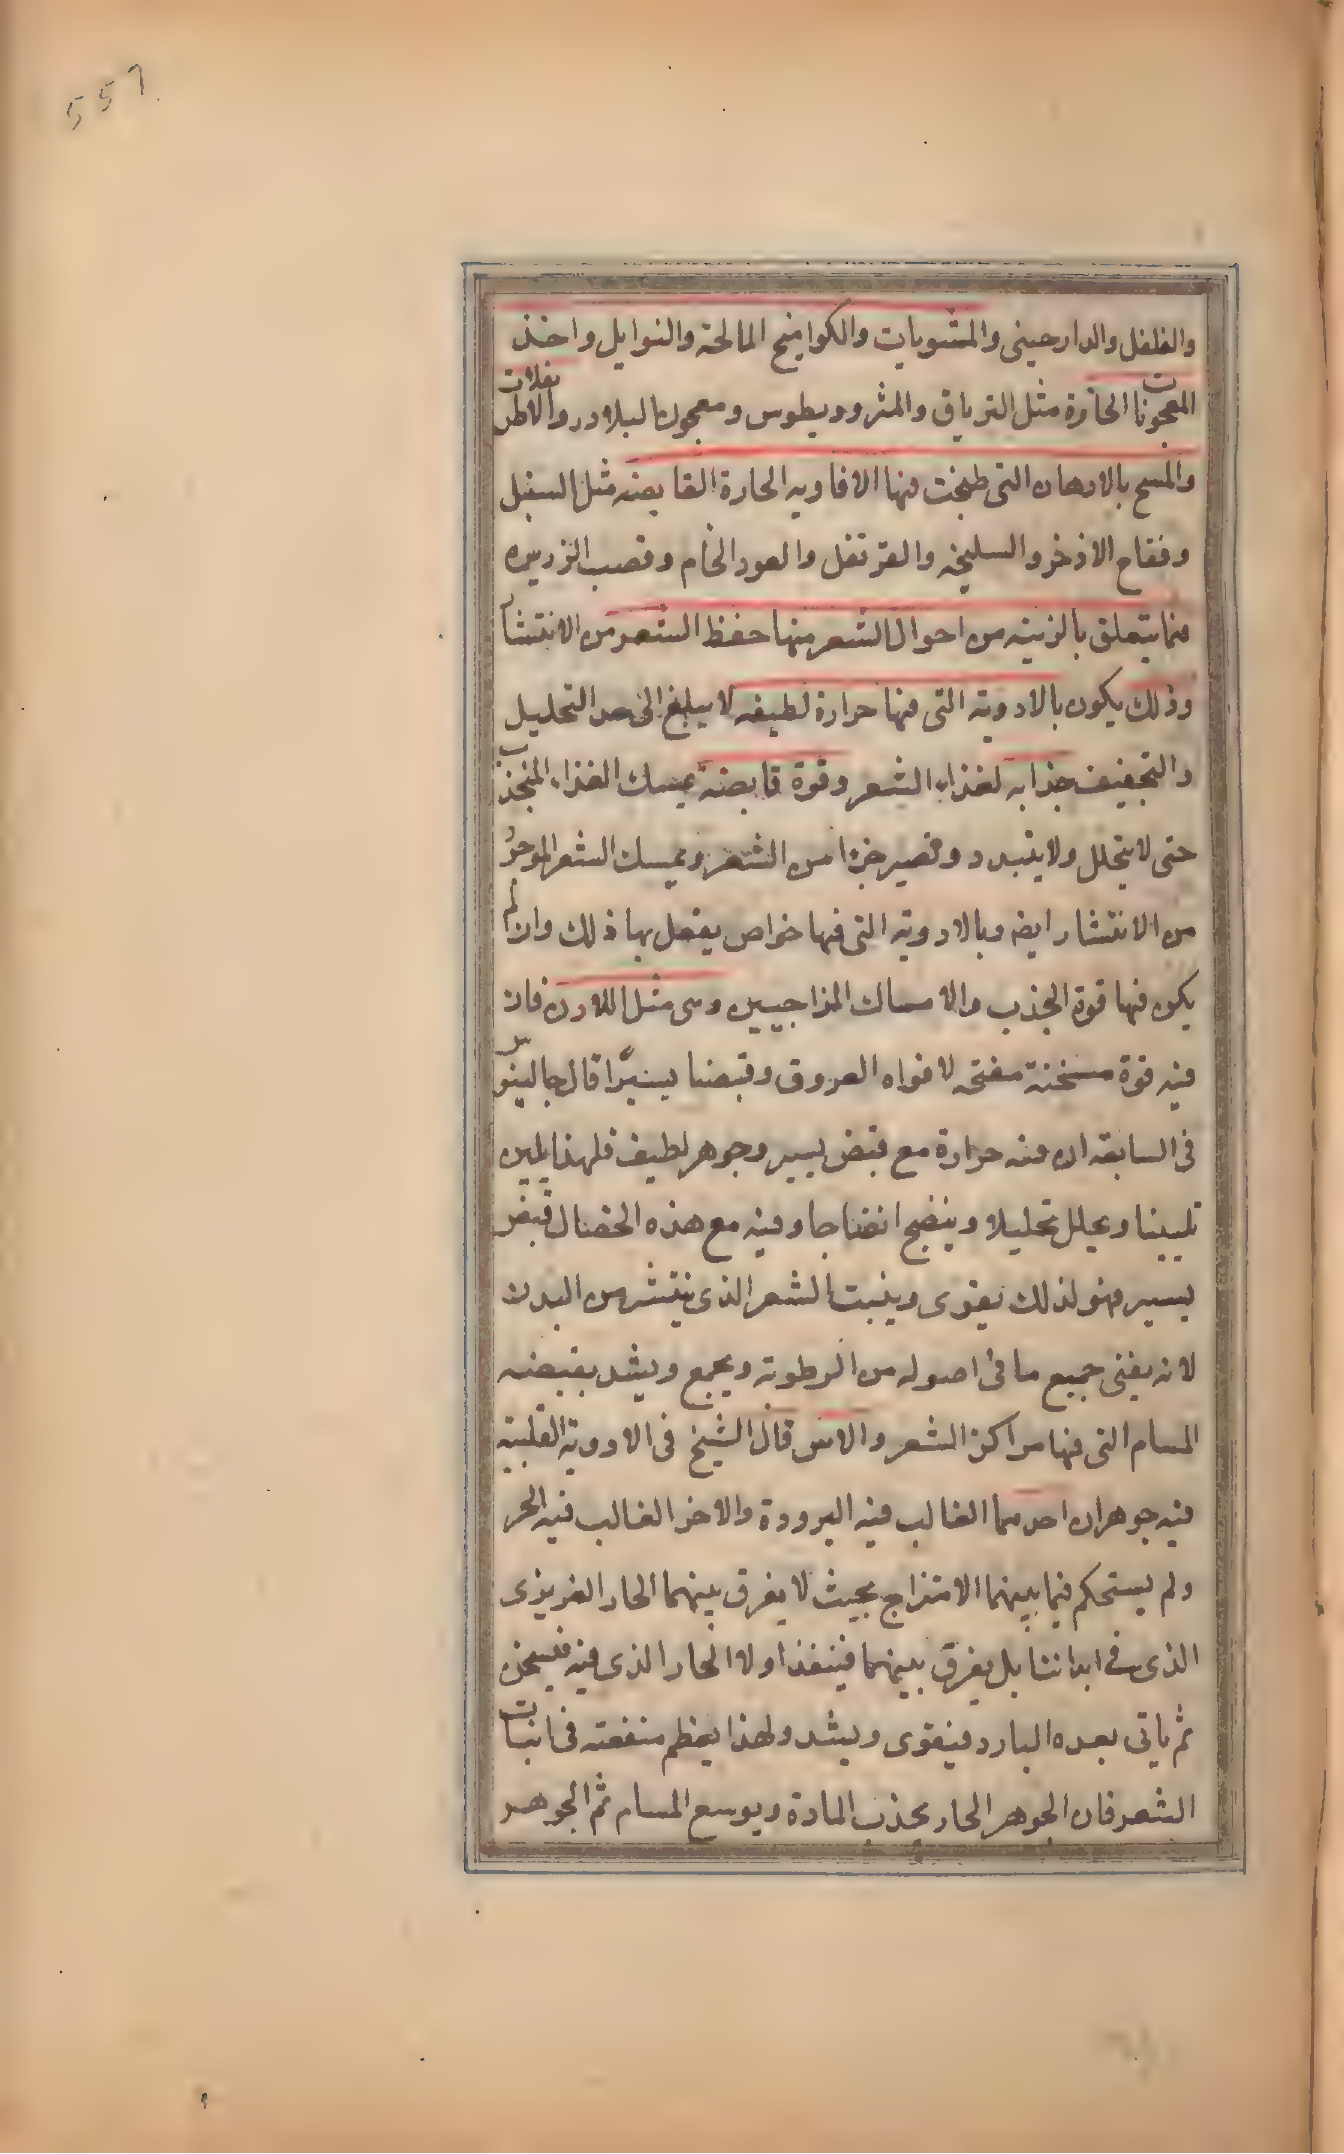 557
والفلفل والدارحينى والمشويات والكواميخ المالحة والتوابل واخذ
المعجونات الحارة مثل الترياق والمثروديطوس ومعجون البلادر والاطريفلات
والمسح بالادهان التى طبخت فيها الافاويه الحارة القابضة مثل السنبل
وفقاح الاذخر والسليخه والقرنفل والعود الخام وقصب الزريره
فيما يتعلق بالزينه من احوال الشعر منها حفظ الشعر من الانتشار
وذلك يكون بالادوية التى فيها حرارة لطيفه لا يبلغ الى حد التحليل
والتجفيف جذابه لغذاء الشعر وقوة قابضة يمسك الغذاء المنجذب
حتى لا يتحلل ولا يتبدد وتصير جزءا من الشعر ويمسك الشعر الموجود
من الانتشار ايضا وبالادوية التى فيها خواص يفعل بها ذلك وان لم
يكون فيها قوة الجذب والامساك المزاجيين وهى مثل اللادن فان
فيه قوة مسخنة مفتحه لافواه العروق وقبضا يسيرا قال جالينوس
فى السابعه ان فيه حرارة مع قبض يسير وجوهر لطيف فلهذا يلين
تليينا ويحلل تحليلا وينضج انضاجا وفيه مع هذه الخصال قبض
يسير فهو لذلك يقوى وينبت الشعر الذى ينتشر من البدن
لانه يفنى جميع ما فى اصوله من الرطوبة ويجمع ويشد بقبضه
المسام التى فيها مراكز الشعر والاس قال الشيخ فى الادوية القلبية
فيه جوهران احدهما الغالب فيه البرودة والاخر الغالب فيه الحر
ولم يستحكم فيما بينهما الامتزاج بحيث لا يفرق بينهما الحار الغريزى
الذى فى ابداننا بل يفرق بينهما فينفذ اولا الحار الذى فيه فيسخن
ثم ياتى بعده البارد فيقوى ويشد ولهذا يعظم منفعته فى انبات
الشعر فان الجوهر الحار يجذب المادة ويوسع المسام ثم الجوهر